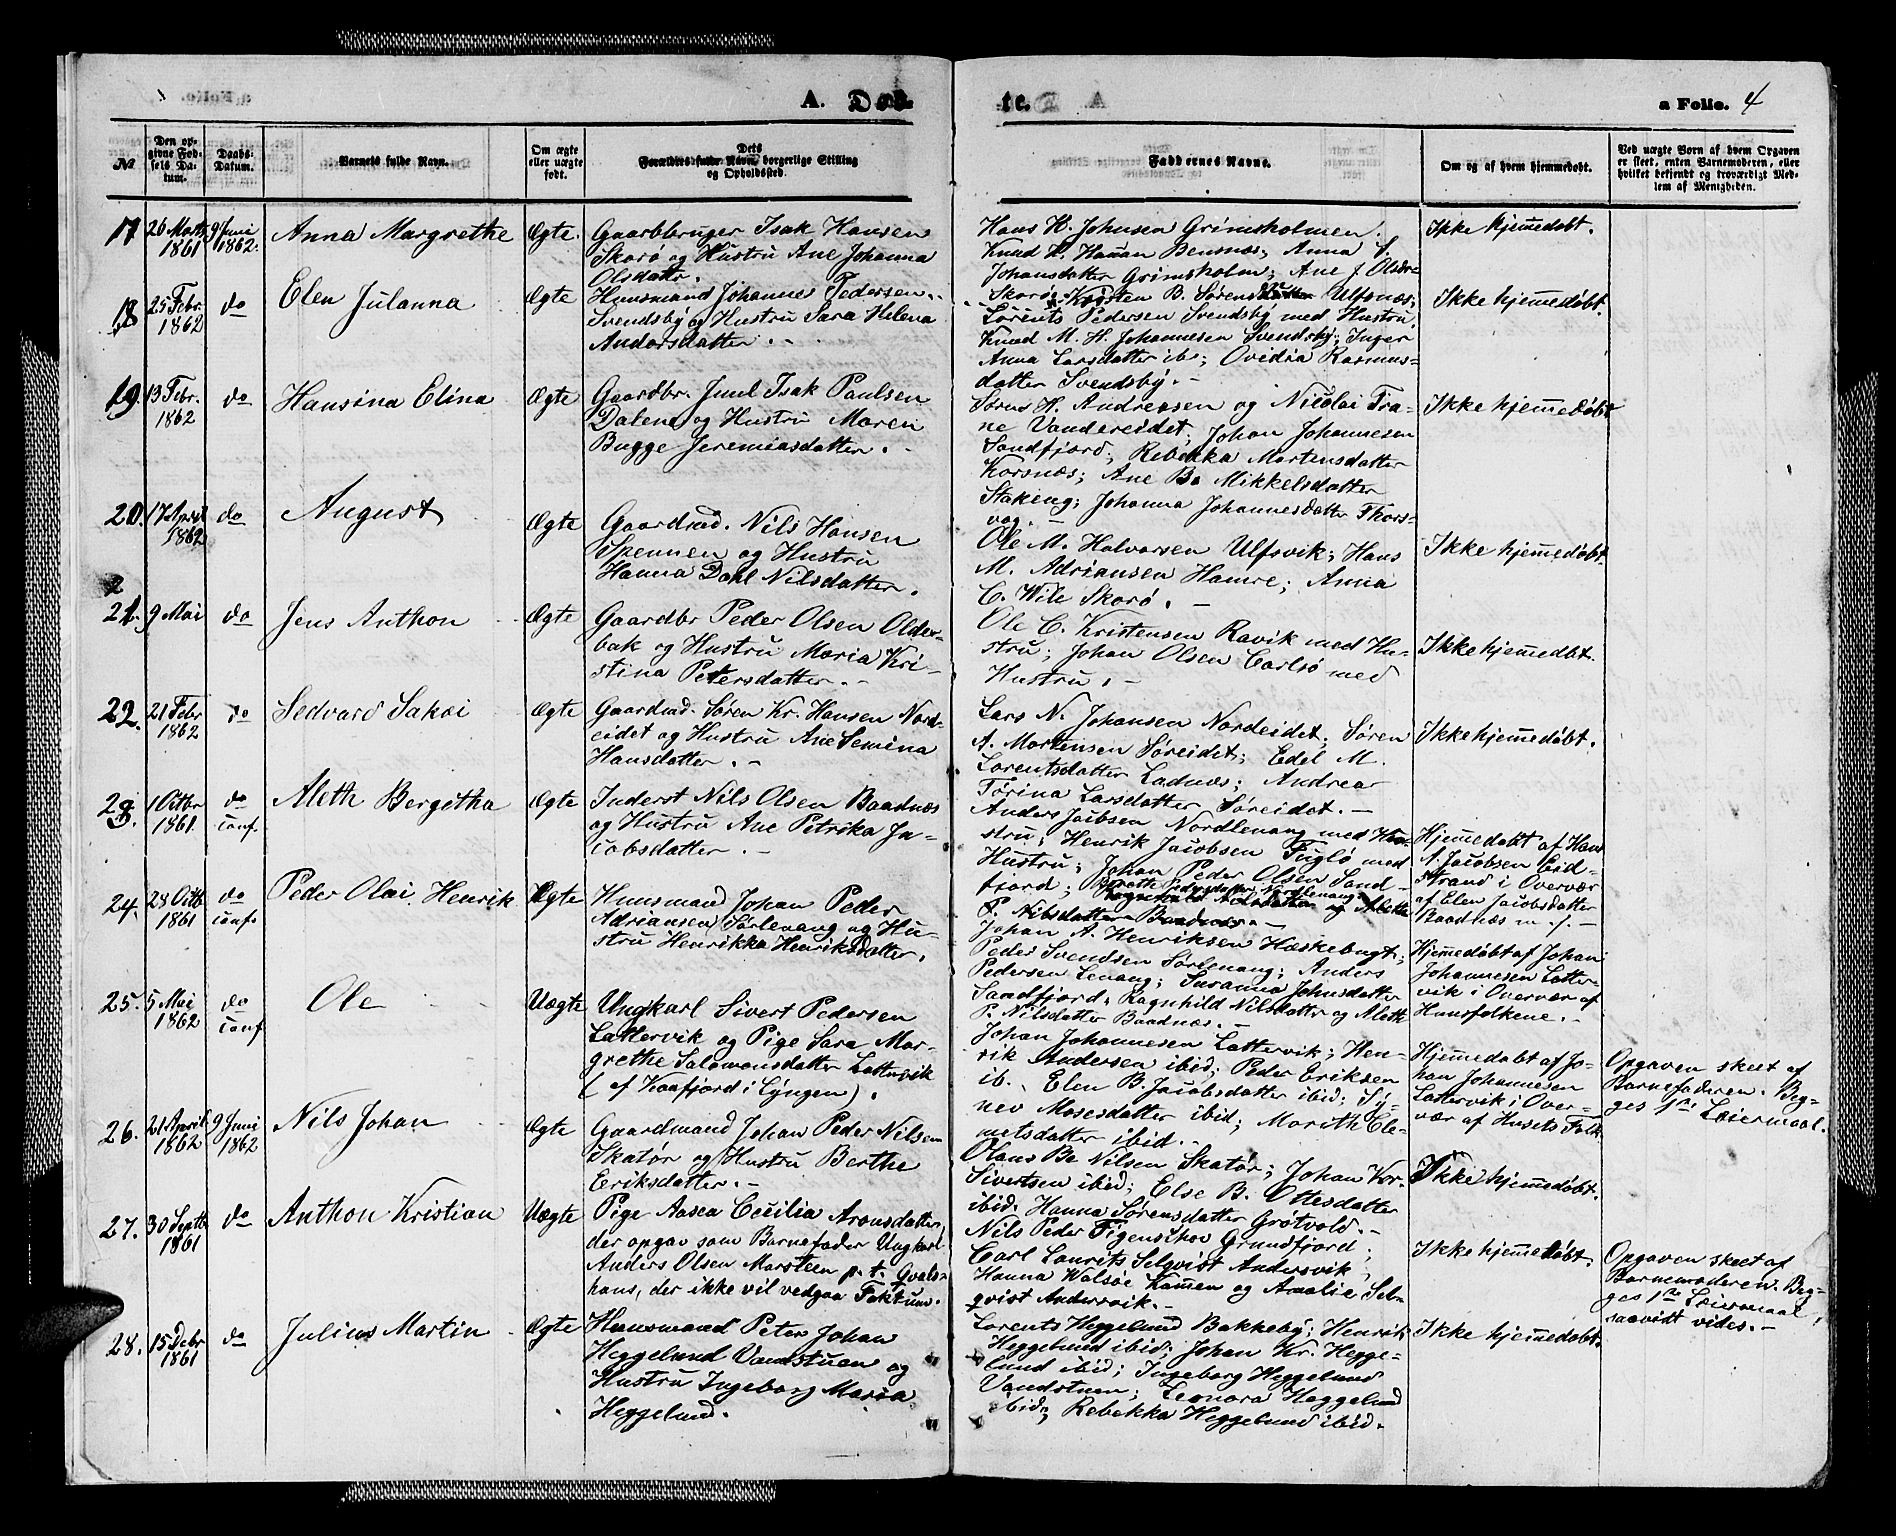 a Folio.
A. Døb-
te.
A.
a Folio. 4
№
Den op-
givne Fød-
sels Da-
tum.
Daabs-
Datum.
Barnets fulde Navn.
Om ægte
eller uægte
født.
Dets
Forældres fulde Navn, borgerlige Stilling
og Opholdssted.
Faddernes Navne.
Om og af hvem hjemmedøbt.
Ved uægte Born af hvem Opgaven
er skeet, enten Barnemoderen, eller
hvilket bekjendt og troværdigt Med-
lem af Menigheden.
17
26 Marts
1861
9 Juni
1862.
Anna Margrethe
Ægte.
Gaardbruger Isak Hansen
Skorø og Hustru Ane Johanna
Olsdattr.
Hans H. Johnsen Grimsholmen.
Knud H. Hansen Bensnæs; Anna J.
Johansdatter Grimsholm; Ane J. Olsdr
Skorø.
Ikke hjemedøbt.
18
25 Febr.
1862
do
Elen Julanna
Ægte
Huusmand Johannes Pedersen
Svendsby og Hustru Sara Helena
Andorsdatter. -
Karsten B. Sørens Ulfsnæs;
Lorents Pedersen Svendsby med Hustru,
Knud M. H. Johannesen Svendsby; Inger
Anna Larsdatter ibi; Ovidia Rasmus-
datter Svendsby. -
Ikke hjemedøbt.
19.
13 Febr.
1862
do
Hansina Elina
Ægte
Gaardbr. Juul Isak Paulsen
Dalene og Hustru Maren
Bugge Jeremiasdatter. -
Sørns H. Andreasen og Nicolai Fra-
ne Vandereidet; Johan Johannesen
Sandfjord; Rebekka Mortensdatter
Korsnæs; Ane Be Mikkelsdatter
Stakeng; Johanna Johannesdatter Thors-
vag. -
Ikke hjemedøbt
20.
17 April
1862
do
August
Ægte
Gaardmd. Nils Hansen
Spennen og Hustru
Hanna Dahl Nilsdatter.
Ole M. Halvorsen Ulfsvik; Hans
M. Adriansen Hamre; Anna
C. Wile Skorø. -
Ikke hjemedøbt.
21.
9 Mai
do
Jens Anthon
Ægte
Gaardbr Peder Olsen Older-
bak og Hustru Maria Kri-
stina Petersdatter. -
Ole C. Kristensen Ravik med Hu-
stru; Johan Olsen Carlsø med
Hustru. -
Ikke hjemedøbt.
22.
21 Febr
1862
do
Sedvard Sakæi
Ægte
Gaardmd. Søren Kr. Hansen Nord-
eidet og Hustru Ane Semina
Hansdatter. -
Lars N. Johansen Nordeidet; Søren
A. Mortensen Søreidet; Edel M.
Lorentsdatter Ladnæs; Andrea
Tørina Larsdatter Søreidet. -
Ikke hjemedøbt.
23.
1 Octbr
1861.
do
conf.
Aleth Bergitha
Ægte
Inderst Nils Olsen Baadnæs
og Hustru Ane Petrika Ja-
cobsdatter. -
Anders Jacobsen Nordlenang med Hu-
stru; Henrik Jacobsen Fuglø med
Hustru; Johan Peder Olsen Sand-
fjord;
P. Nilsdatter Baadnæs. -
Hjemedøbt af Hans
A. Jacobsen Eid-
strand i Overvær
af Elen Jacobsdatter
Baadnæs m. fl. -
24.
28 Octb.
1861
do
conf.
Peder Olai Henrik
Ægte
Huusmand Johan Peder
Adriansen Sørlenang og Hu-
stru Henrikka Henriksdatter.
Johan A. Henriksen Hæskebugt;
Peder Svendsen Sørlenang; Anders
Pedersen Lenang; Susanna Johnsdatter
Sandfjord; Ragnhild Nilsdatter og Aleth
P. Nilsdatter Baadnæs. -
Hjemedøbt af Johan
Johannesen Latter-
vik i Overvær af
Huusfolkene. -
25.
5 Mai
1862
do
conf
Ole
Uægte
Ungkarl Sivert Pedersen
Lattervik og Pige Sara Mar-
grethe Salomonsdatter Lattervik
(af Kaafjord i Lyngen).
Johan Johannesen Lattervik; Hen-
rik Andersen ibid; Peder Eriksen
ib. Elen B. Jacobsdatter ibid; Si-
nev Mosesdatter ibid; Marith Cle-
metsdatter ibid. -
Hjemedøbt af Jo-
han Johannesen
Lattervik i Over-
vær af Husets Folk.
Opgaven skeet af
Barnefaderen. Beg-
ges 1ste Leiermaal.
26.
21 April
1862
9 Juni
1862
Nils Johan
Ægte
Gaardmand Johan Peder Nilsen
Skatør og Hustru Berthe
Eriksdatter. -
Olaus Be Nilsen Skatør; Johan Kor.
Sivertsen ibid; Else B. Ottesdatter
ibid. Hanna Sørensdatter Grøtvold. -
Ikke hjemedøbt.
27.
30 Septb
1861
do
Anthon Kristian
Uægte
Pige Aasea Cecilia Aronsdatter,
der opgav som Barnefader Ungkarl
Anders Olsen Marsteen p. t. Qvals-
haus, der ikke vil vedgaa Faktum.
Nils Peder Figenschov Grundfjord;
Carl Laurits Selqvist Andersvik;
Hanna Walsøe Kammen og Amalie Sel-
qvist Andersvik. -
Ikke hjemedøbt.
Opgaven skeet af
Barnemoderen. Beg-
ges 1ste Leiermaal,
saavidt vides. -
28.
15 Debr
1861
do
Julius Martin
Ægte
Huusmand Peter Johan
Heggelund Vandstuen og
Hustru Ingeborg Maria
Heggelund.
Lorents Heggelund Bakkeby; Henrik
Heggelund ibid; Johan Kr. Hegge-
lund ibid; Ingeborg Heggelund
Vandstuen; Leonora Heggelund
ibid; Rebekka Heggelund ibid.
Ikke hjemedøbt.